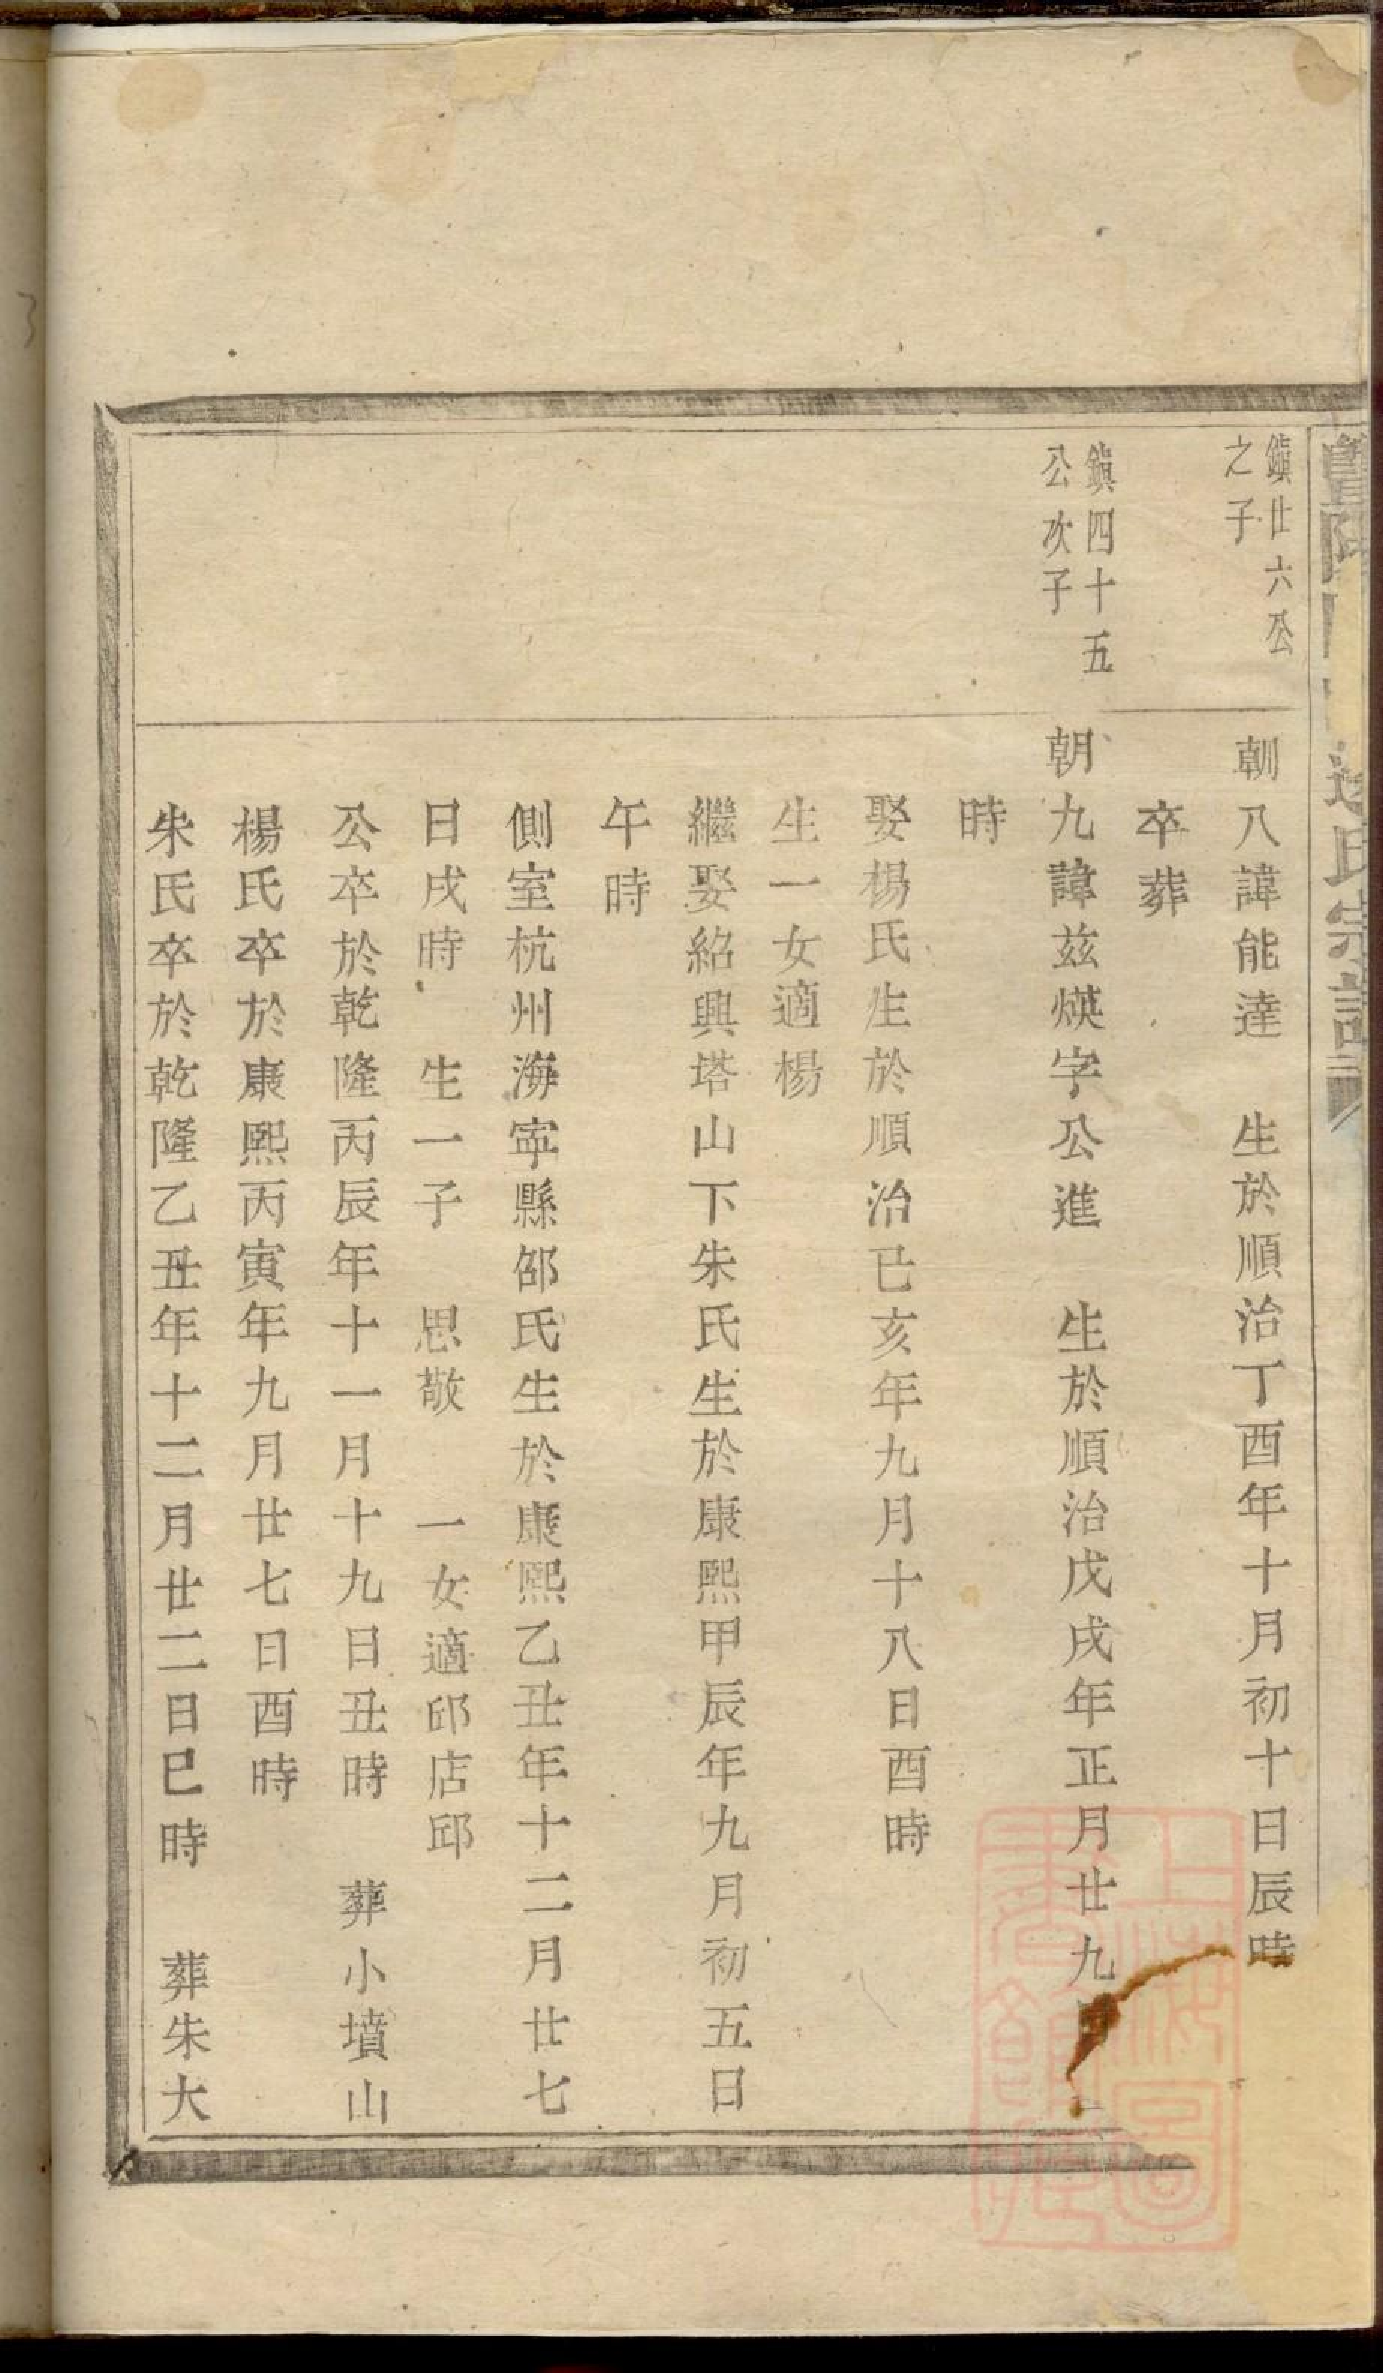 暨陽
氏宗譜
鎮廿六公
之子
朝八諱能達　生於順治丁酉年十月初十日辰時
卒葬
鎮四十五
公次子
朝九諱玆煐字公進　生於順治戊戌年正月廿九
時
娶楊氏生於順治已亥年九月十八日酉時
生一女適楊
繼娶紹興塔山下朱氏生於康熙甲辰年九月初五日
午時
側室杭州海寧縣邵氏生於康熙乙丑年十二月廿七
日戌時　生一子　思敬　一女適邱店邱
公卒於乾隆丙辰年十一月十九日丑時　葬小墳山
楊氏卒於康熙丙寅年九月廿七日酉時
朱氏卒於乾隆乙丑年十二月廿二日巳時　葬朱大
上海圖
書館藏